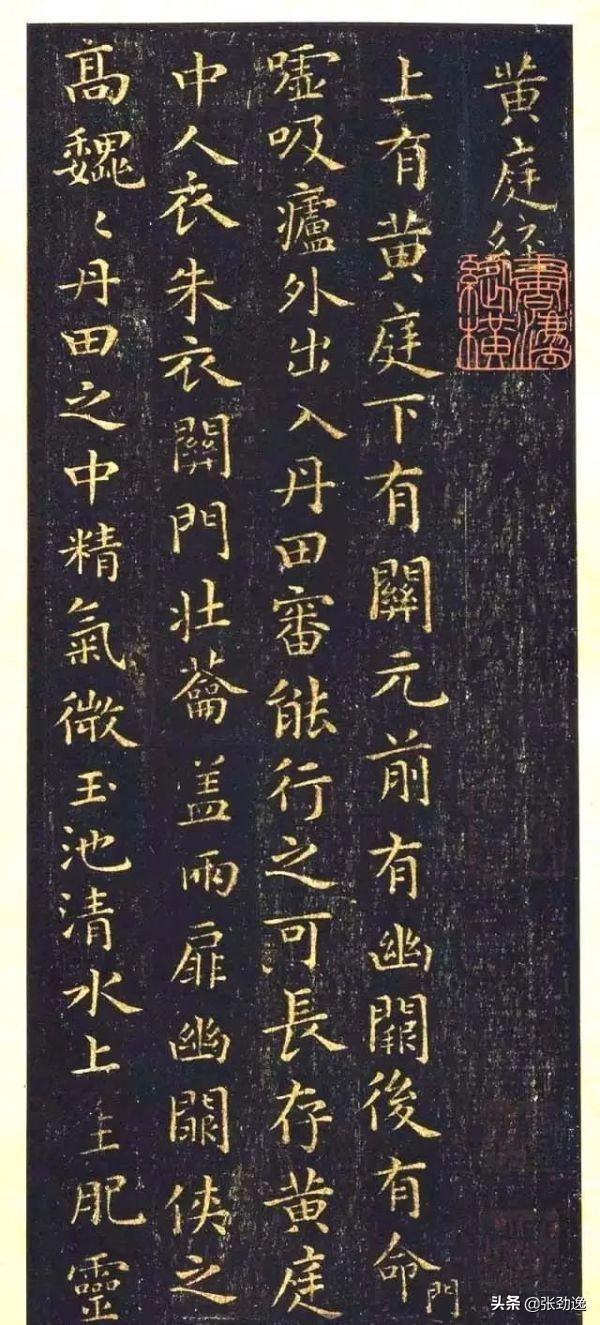 黄庭經
上有黄庭下有關元前有幽闕後有命門
嘘吸廬外出入丹田審能行之可長存黄庭
中人衣朱衣關門壯蘥盖兩扉幽闕俠之
高巍〻丹田之中精氣微玉池清水上生肥靈
头条 @张劲逸